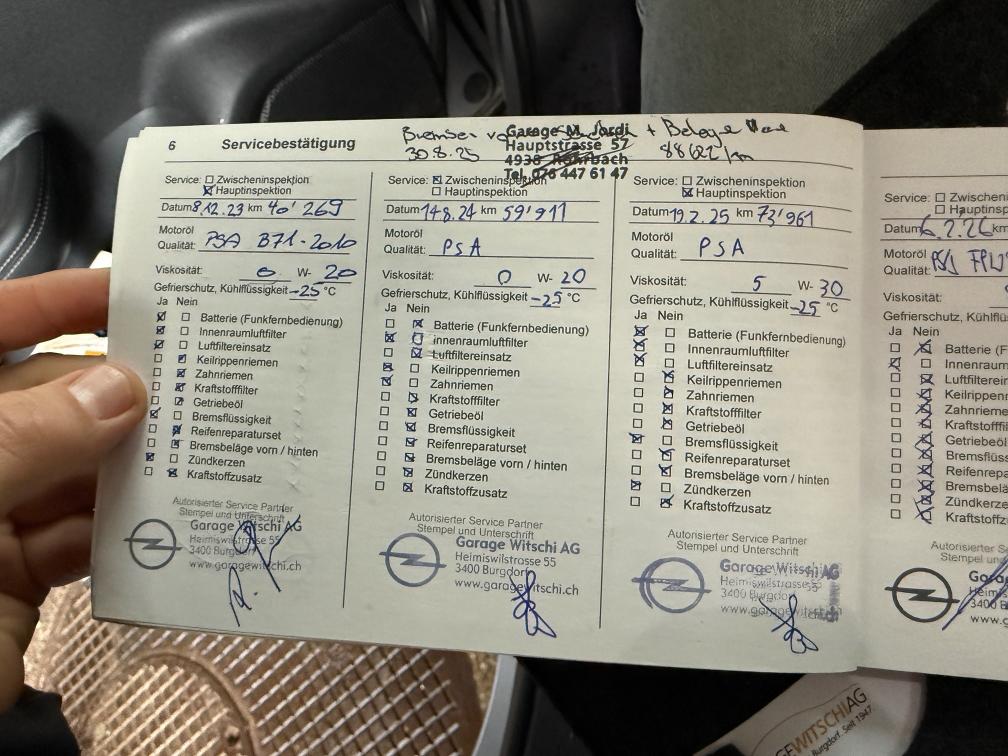 6 Servicebestätigung
Bremsen + Beläge
30.8.25 88622 km
Garage M. Jordi
Hauptstrasse 57
4938 Rohrbach
Tel. 076 447 61 47
Service: Zwischeninspektion
Hauptinspektion
Datum 8.12.23 km 40'269
Motoröl
Qualität: PSA B71-2010
Viskosität: 0 W- 20
Gefrierschutz, Kühlflüssigkeit -25 °C
Ja Nein
Batterie (Funkfernbedienung)
Innenraumluftfilter
Luftfiltereinsatz
Keilrippenriemen
Zahnriemen
Kraftstofffilter
Getriebeöl
Bremsflüssigkeit
Reifenreparaturset
Bremsbeläge vorn / hinten
Zündkerzen
Kraftstoffzusatz
Autorisierter Service Partner
Stempel und Unterschrift
Garage Witschi AG
Heimiswilstrasse 55
3400 Burgdorf
www.garagewitschi.ch
Service: Zwischeninspektion
Hauptinspektion
Datum 14.8.24 km 59'911
Motoröl
Qualität: PSA
Viskosität: 0 W- 20
Gefrierschutz, Kühlflüssigkeit -25 °C
Ja Nein
Batterie (Funkfernbedienung)
Innenraumluftfilter
Luftfiltereinsatz
Keilrippenriemen
Zahnriemen
Kraftstofffilter
Getriebeöl
Bremsflüssigkeit
Reifenreparaturset
Bremsbeläge vorn / hinten
Zündkerzen
Kraftstoffzusatz
Autorisierter Service Partner
Stempel und Unterschrift
Garage Witschi AG
Heimiswilstrasse 55
3400 Burgdorf
www.garagewitschi.ch
Service: Zwischeninspektion
Hauptinspektion
Datum 19.2.25 km 73'961
Motoröl
Qualität: PSA
Viskosität: 5 W- 30
Gefrierschutz, Kühlflüssigkeit -25 °C
Ja Nein
Batterie (Funkfernbedienung)
Innenraumluftfilter
Luftfiltereinsatz
Keilrippenriemen
Zahnriemen
Kraftstofffilter
Getriebeöl
Bremsflüssigkeit
Reifenreparaturset
Bremsbeläge vorn / hinten
Zündkerzen
Kraftstoffzusatz
Autorisierter Service Partner
Stempel und Unterschrift
Garage Witschi AG
Heimiswilstrasse 55
3400 Burgdorf
www.garagewitschi.ch
Service: Zwischen
Hauptinsp
Datum 6.2.26 km
Motoröl
Qualität: PSA
Viskosität:
Gefrierschutz, Kühlflüss
Ja Nein
Batterie (F
Innenraum
Luftfilterein
Keilrippen
Zahnrieme
Kraftstofff
Getriebeöl
Bremsflüss
Reifenrepa
Bremsbelä
Zündkerze
Kraftstoffz
Autorisierter Se
Stempel und
Gar
Heimis
3400 B
www.g
GEWITSCHIAG
Burgdorf. Seit 1947